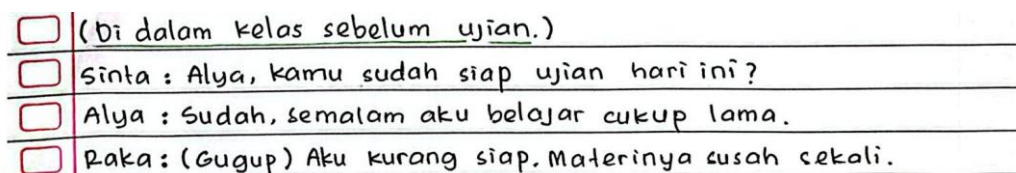 (Di dalam kelas sebelum ujian.)
Sinta : Alya, kamu sudah siap ujian hari ini?
Alya : Sudah, semalam aku belajar cukup lama.
Raka : (Gugup) Aku kurang siap. Materinya susah sekali.